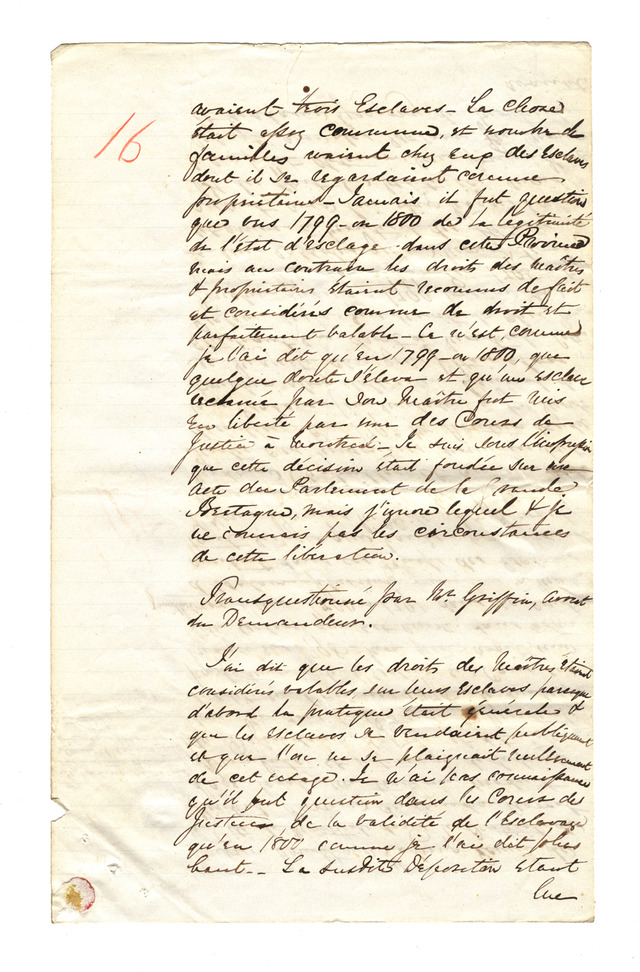 16
avaient trois Esclaves - La chose
était assez commune, et nombre de
familles avaient chez eux des Esclaves
dont il se regardaient comme
propriétaires - Jamais il fut question
que vers 1799 - ou 1800 de la légitimité
de l'état d'esclage dans cette Province
mais au contraire les droits des Maîtres
& propriétaires étaient reconnus de fait
et considérés comme de droit et
parfaitement valable - Ce n'est, comme
je l'ai dit qu'en 1799 - ou 1800, que
quelque doute s'éleva et qu'un esclave
réclamé par son Maître fut mis
en liberté par une des Cours de
Justice à Montréal - Je suis sous l'impression
que cette décision était fondée sur un
acte du Parlement de la Grande
Bretagne, mais j'ignore lequel & je
ne connais pas les circonstances
de cette libération.
Transquestionné par Mr. Griffin, avocat
du Demandeur.
J'ai dit que les droits des Maîtres étaient
considérés valables sur leurs Esclaves parceque
d'abord la pratique était générale &
que les Esclaves se vendaient publiquement
et que l'on ne se plaignait nullement
de cet usage. Je n'ai pas connaissance
qu'il fut question dans les Cours de
Justice, de la validité de l'Esclavage
qu'en 1800 comme je l'ai dit plus
haut - La susdite Déposition étant
lue